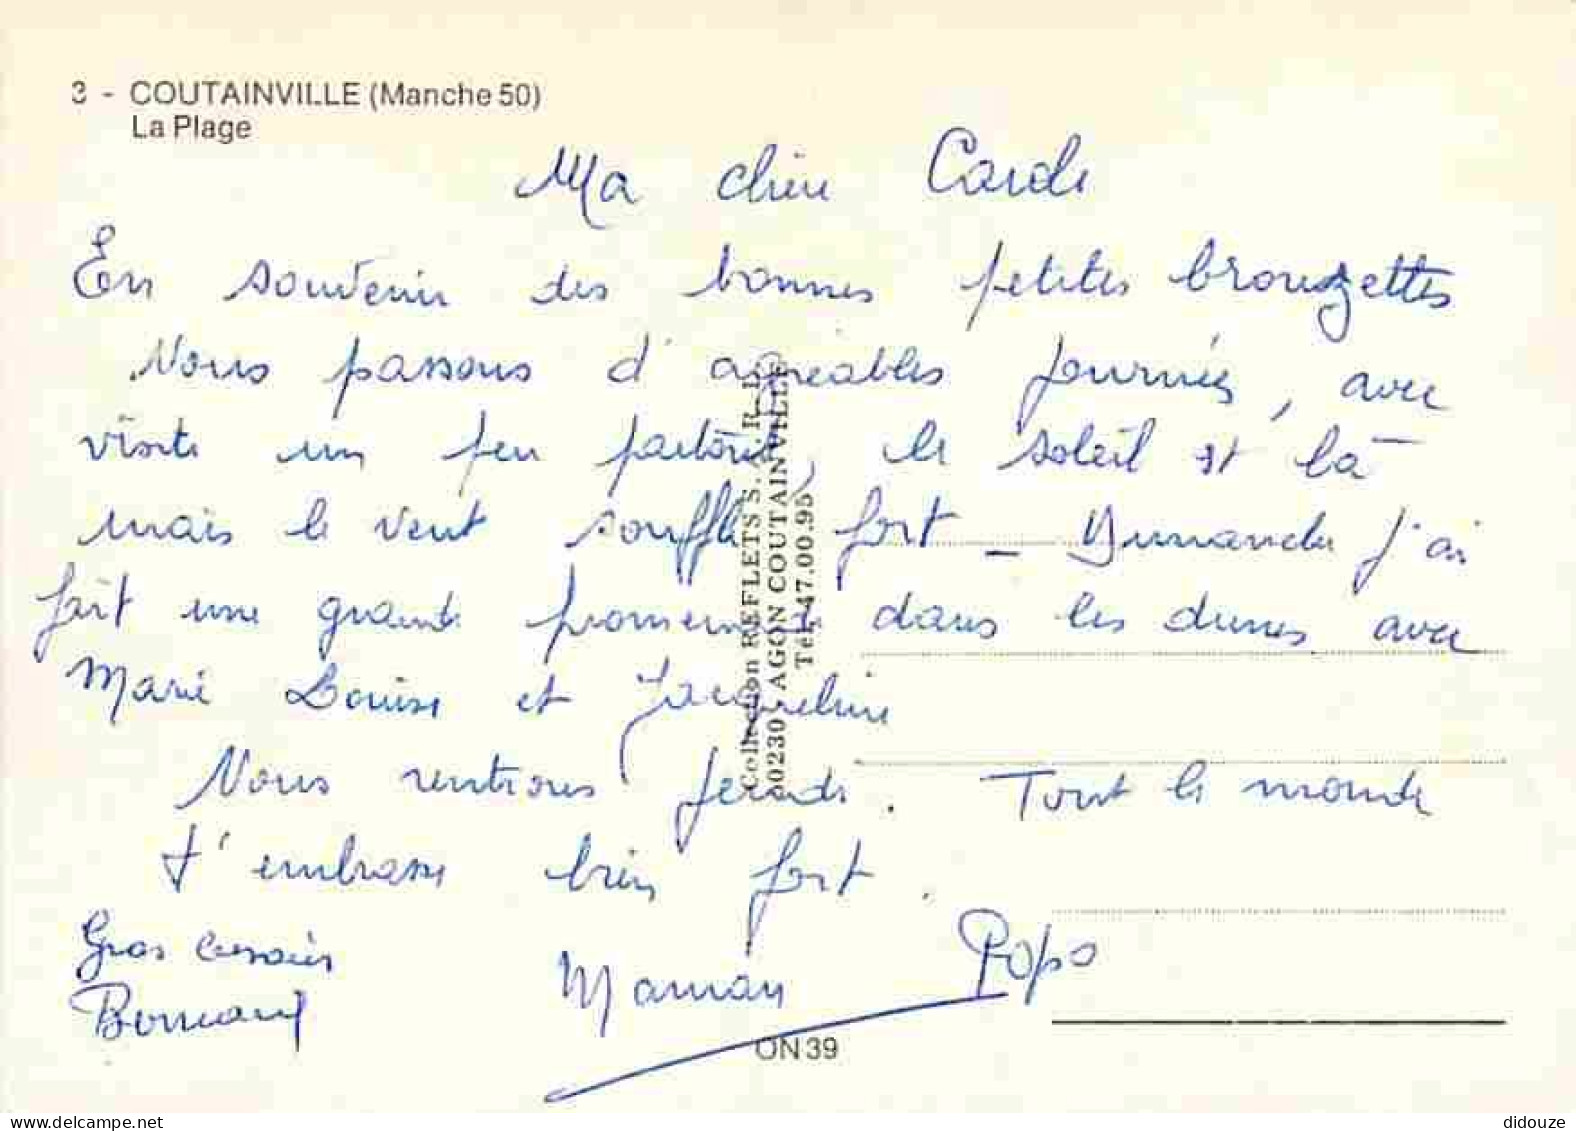 3 - COUTAINVILLE (Manche 50)
La Plage
Ma chère Carole
En souvenir des bonnes petites brouzettes
Nous passons d'agréables journées, avec
visite un peu partout, le soleil est là
mais le vent souffle fort - Dimanche j'ai
fait une grande promenade dans les dunes avec
Marie Louise et Jacqueline
Nous rentrons jeudi. Tout le monde
t'embrasse bien fort.
Gros
Maman Papa
Collection REFLETS S.A.R.L.
50230 AGON COUTAINVILLE
Tél. 47.00.95
ON 39
delcampe.net
didouze